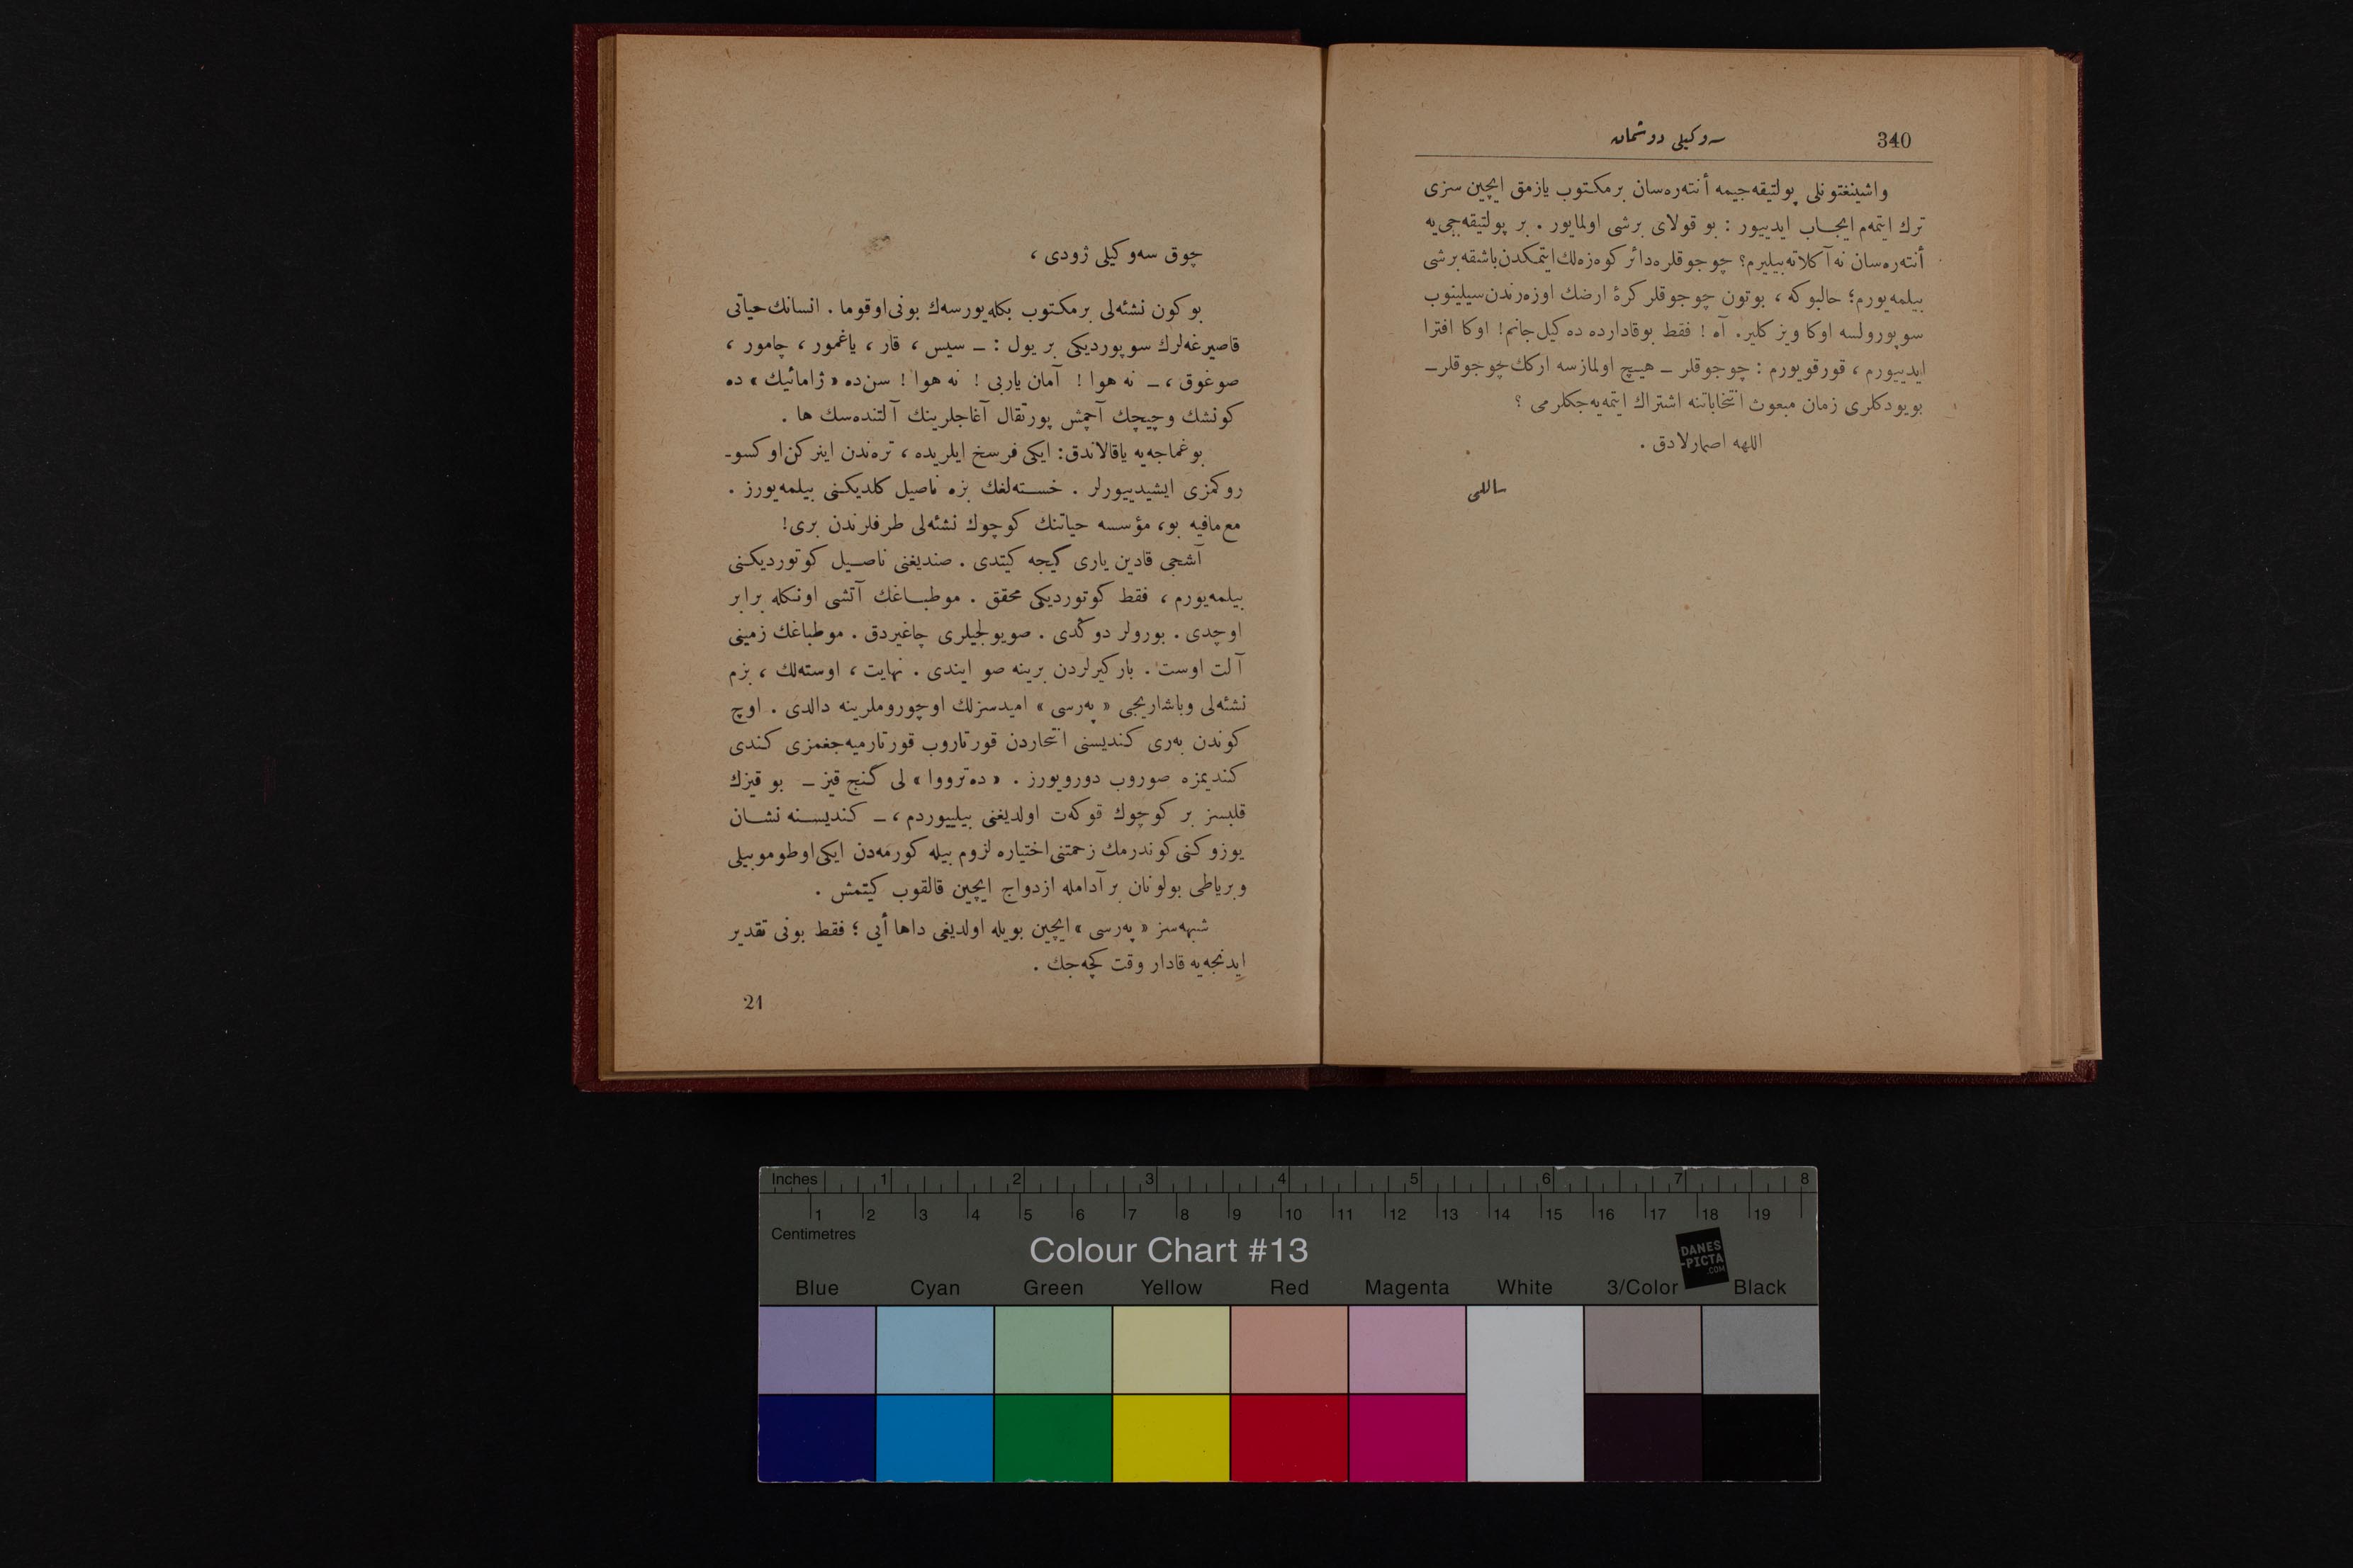 340
سه‌وکیلی دوشمان
واشینغتونلی پولتیقه‌جیمه أنته‌ره‌سان بر مکتوب یازمق ایچین سزی
ترك ایتمه‌م ایجاب ایدییور : بو قولای برشی اولمایور . بر پولتیقه‌جی‌یه
أنته‌ره‌سان نه آكلاته‌بیلیرم؟ چوجوقلره‌دائر كوه‌زه‌لك‌ایتمكدن‌باشقه برشی
بیلمه‌یورم؛ حالبوكه ، بوتون چوجوقلر كرۀ ارضك اوزه‌رندن‌سیلینوب
سوپورولسه اوكا ویز كلیر. آه ! فقط بوقدارده ده‌كیل‌جانم! اوكا افترا
ایدییورم ، قورقویورم : چوجوقلر ـ هیچ اولمازسه اركك‌چوجوقلرـ
بویودكلری زمان مبعوث انتخاباتنه اشتراك ایتمه‌یه‌جكلرمی ؟
اللهه اصمارلادق .
ساللی
چوق سه‌وكیلی ژودی ،
بوكون نشئه‌لی برمكتوب بكله‌یورسه‌ك بونی‌اوقوما . انسانك‌حیاتی
قاصیرغه‌لرك سوپوردیكی بر یول : ـ سیس ، قار ، یاغمور ، چامور ،
صوغوق ، ـ نه هوا ! آمان یاربی ! نه هوا ! سن‌ده « ژامائیك » ده
كونشك وچیچك آچمش پورتقال آغاجلرینك آلتنده‌سك ها .
بوغماجه‌یه یاقالاندق: ایكی فرسخ ایلریده ، ترەندن اینركن‌اوكسوـ
روكمزی ایشیدییورلر . خسته‌لغك بزه ناصیل كلدیكنی بیلمه‌یورز .
مع‌مافیه بو، مؤسسه حیاتنك كوچوك نشئه‌لی طرفلرندن بری!
آشجی قادین یاری گیجه كیتدی . صندیغنی ناصیل كوتوردیكنی
بیلمه‌یورم ، فقط كوتوردیكی محقق . موطباغك آتشی اونكله برابر
اوچدی . بورولر دوكدی . صویولجیلری چاغیردق . موطباغك زمینی
آلت اوست . باركیرلردن برینه صو ایندی . نهایت ، اوسته‌لك ، بزم
نشئه‌لی وباشاریجی « په‌رسی » امیدسزلك اوچوروملرینه دالدی . اوچ
كوندن به‌ری كندیسنی انتحاردن قورتاروب قورتارمیه‌جغمزی كندی
كندیمزه صوروب دورویورز . « ده‌ترووا » لی گنج قیز ـ بو قیزك
قلبسز بر كوچوك قوكه‌ت اولدیغنی بیلییوردم ، ـ كندیسنه نشان
یوزوكنی‌كوندرمك زحمتنی‌اختیاره لزوم بیله كورمه‌دن ایكی‌اوطوموبیلی
وبریاطی بولونان بر آدامله ازدواج ایچین قالقوب كیتمش .
شبهه‌سز « په‌رسی » ایچین بویله اولدیغی داها أیی ؛ فقط بونی تقدیر
ایدنجه‌یه قادار وقت كچه‌جك .
21
Inches 1 2 3 4 5 6 7 8
1 2 3 4 5 6 7 8 9 10 11 12 13 14 15 16 17 18 19
Centimetres
Colour Chart #13
DANES
-PICTA
.COM
Blue Cyan Green Yellow Red Magenta White 3/Color Black